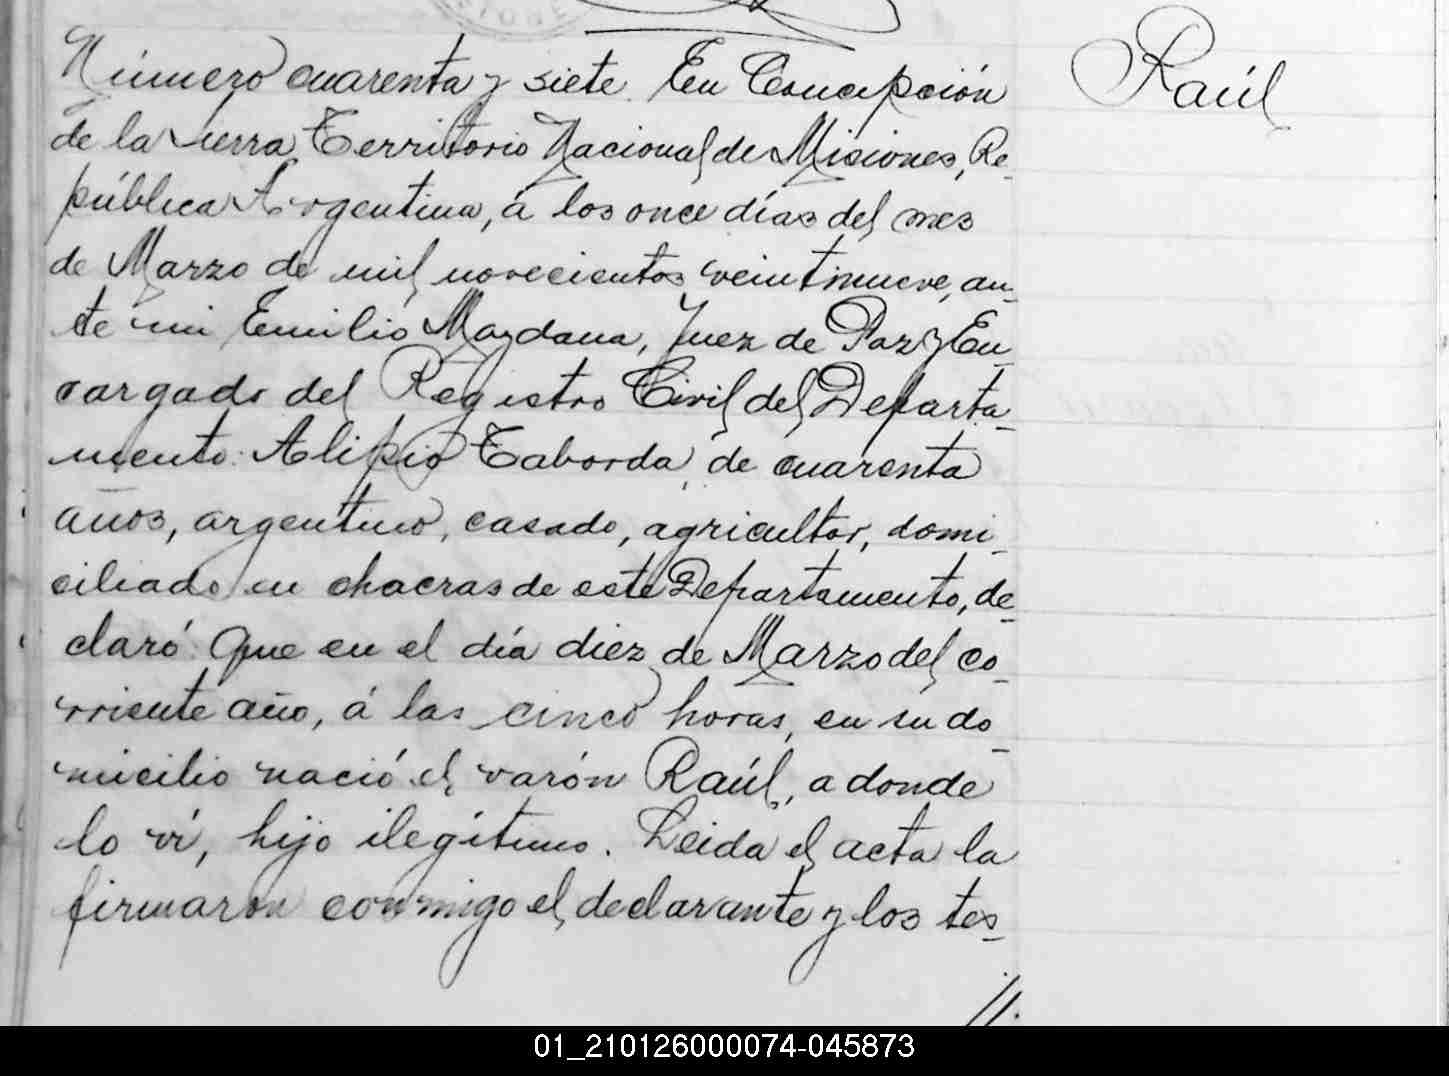 Número cuarenta y siete. En Concepción
Raúl
de la sierra Territorio Nacional de Misiones, Re-
pública Argentina, á los once días del mes
de Marzo de mil novecientos veintinueve, an-
te mi Emilio Maydana, Juez de Paz y En-
cargado del Registro Civil del Departa-
mento: Alipio Taborda, de cuarenta
años, argentino, casado, agricultor, domi-
ciliado en chacras de este Departamento, de-
claró: Que en el día diez de Marzo del co-
rriente año, á las cinco horas, en su do-
micilio nació el varón Raúl, a donde
lo ví, hijo ilegítimo. Leida el acta la
firmaron conmigo el declarante y los tes-
//.
01_210126000074-045873